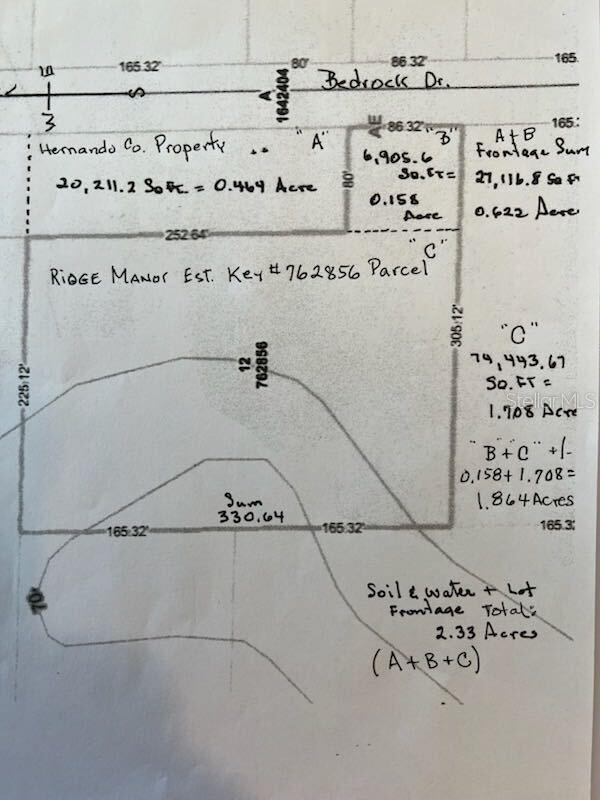 165.32'
80'
86.32'
165.
15
S
A
1642404
Bedrock Dr.
AE
86.32'
"B"
165.
Hernando Co. Property .. "A"
20,211.2 SqFt. = 0.464 Acre
80'
6,905.6
Sq.Ft=
0.158
Acre
A+B
Frontage Sum
27,116.8 Sq Ft
0.622 Acre
252.64'
"C"
RIDGE MANOR EST. Key #762856 Parcel
225.12'
12
762856
305.12'
"C"
74,443.67
SQ.FT =
1.708 Acre
StellarMLS
"B+C" +/-
0.158+1.708=
1.864 Acres
Sum
330.64
165.32'
165.32'
165.3
70'
Soil & Water + Lot
Frontage Total:
2.33 Acres
(A+B+C)